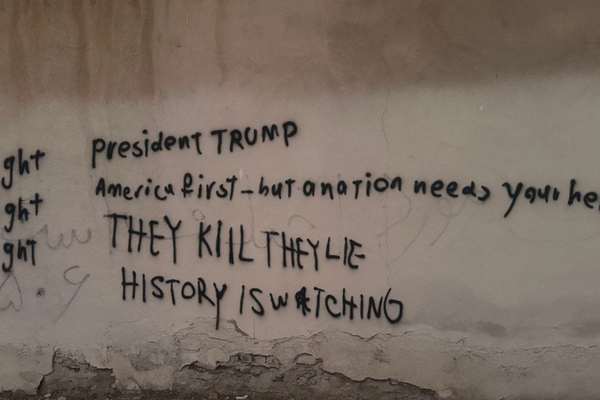 ght President TRUMP
America first - but a nation needs your he
ght
THEY KIIL THEY LIE
ght
HISTORY IS WATCHING